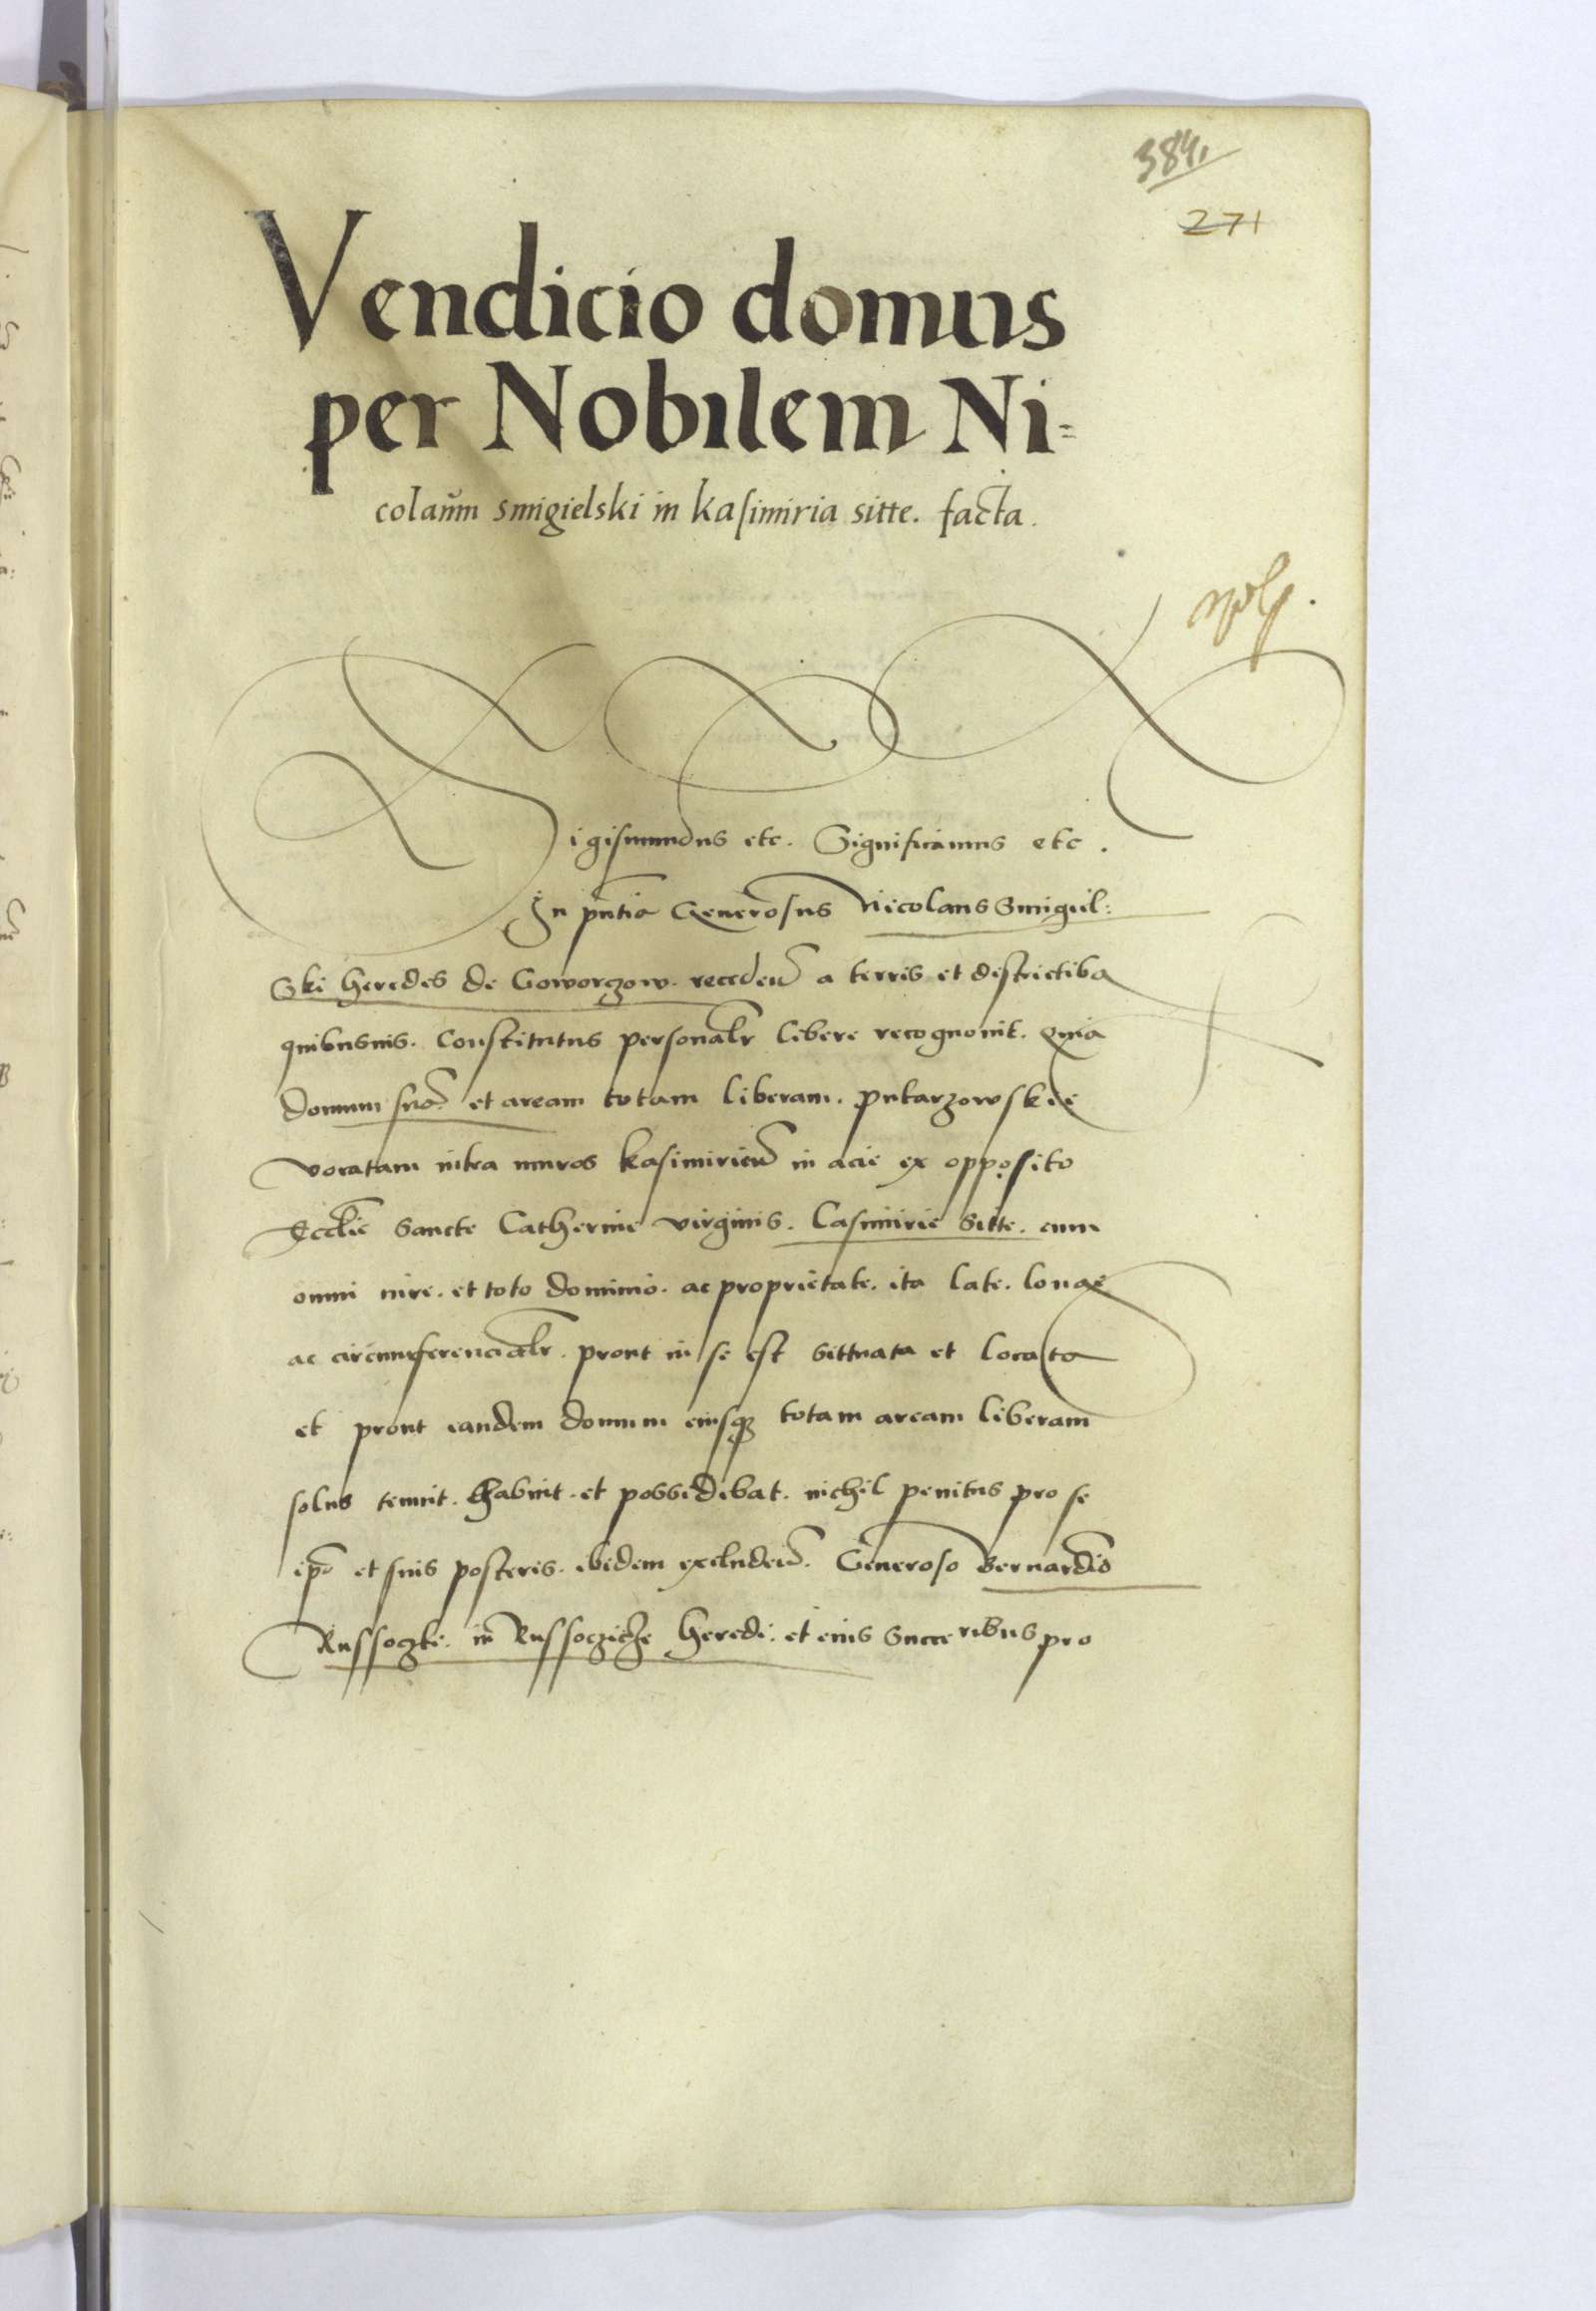 384.
271
Vendicio domus
per Nobilem Ni=
colaum smigielski in kasimiria sitte. facta.
Sigismundus etc. Significamus etc.
In pntia Generosus Nicolaus Smigiel:
Ski heredes de Goworzow. receden a terris et districtibq
quibusuis. Constitutus personalr libere recognouit. Quia
domum sua et aream totam liberam. putarzowskie
vocatam intra muros kasimirien in acie ex opposito
Ecclie sancte Catherine virginis. Casimirie sitte. cum
omni iure. et toto dominio. ac proprietate. ita late. longe
ac circumferencialr. prout in se est sittuata et locata
et prout eandem domum eiusq totam aream liberam
solus tenuit. habuit. et possidebat. nichil penitus pro se
ipo et suis posteris. ibidem excluden. Generoso Bernardo
Russoczki. in Russoczicze heredi. et eius succeribus pro